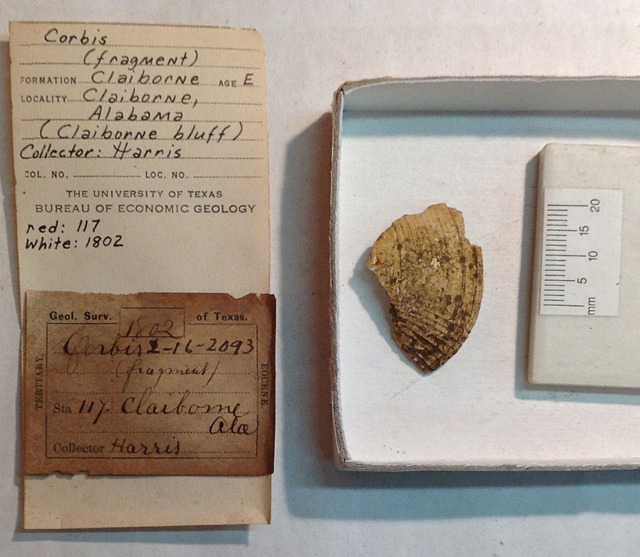 Corbis
(fragment)
FORMATION Claiborne AGE E
LOCALITY Claiborne,
Alabama
(Claiborne bluff)
Collector: Harris
COL. NO. LOC. NO.
THE UNIVERSITY OF TEXAS
BUREAU OF ECONOMIC GEOLOGY
red: 117
White: 1802
Geol. Surv. 1802 of Texas.
Corbis 1-16-2093
(fragment)
TERTIARY.
EOCENE.
Sta 117. Claiborne
Ala
Collector Harris
20
15
10
5
mm